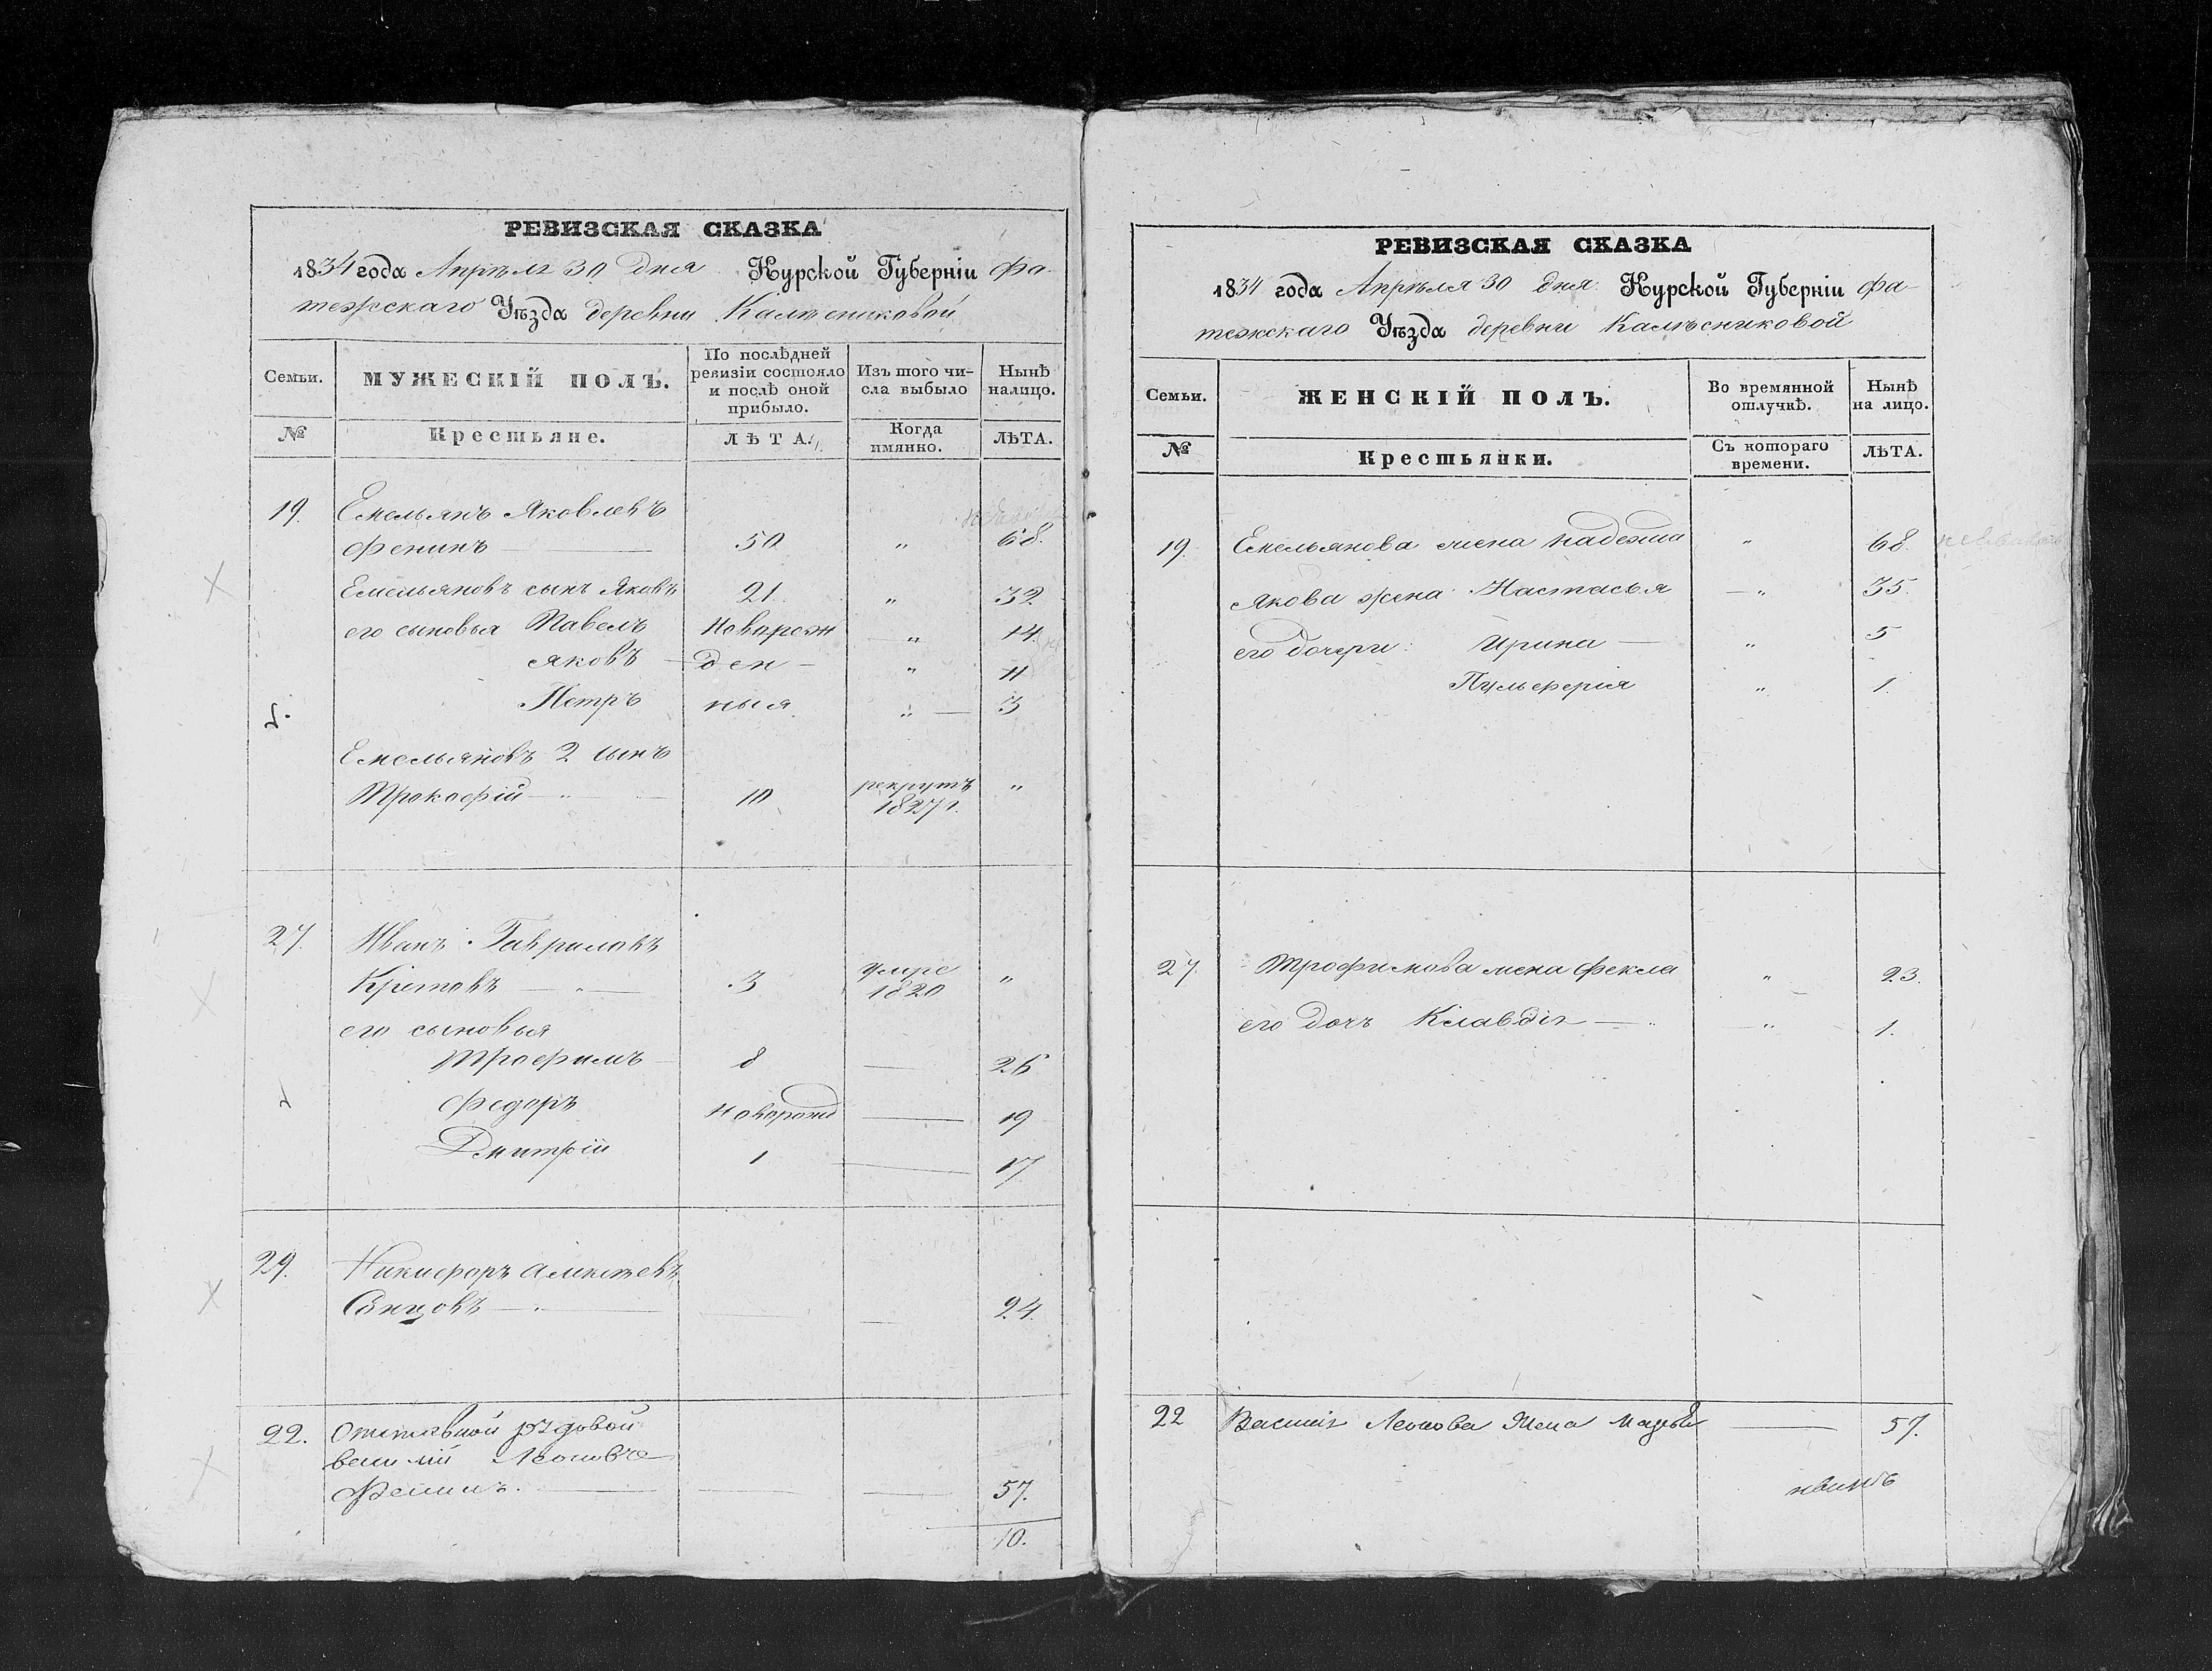 РЕВИЗСКАЯ СКАЗКА
1834 года Апрѣля 30 дня Курской Губерніи Фа-
тежскаго Уѣзда деревни Калѣсниковой
Семьи.
МУЖЕСКІЙ ПОЛЪ.
По послѣдней
ревизіи состояло
и послѣ оной
прибыло.
Изъ того чи-
сла выбыло
Нынѣ
налицо.
№
Крестьяне.
ЛѢТА.
Когда
имянно.
ЛѢТА.
19. Емельянъ Яковлевъ
Фенинъ — 50 „ 68.
Емельяновъ сынъ Яковъ 21. „ 32
его сыновья Павелъ Новорож „ 14
Яковъ — ден — „ 11
Петръ ныя „ — 3
Емельяновъ 2 сынъ
Прокофій — „ — 10 рекрутъ „
1827 г.
27. Иванъ Гавриловъ
Кретовъ — „ — 3 умре „
1820
его сыновья
Трофимъ — 8 — 26
Федоръ Новорожд — 19
Дмитрій 1 — 17
29. Никифоръ Алиѣевъ
Сѣнцовъ — — — 24.
22. Отставной рядовой
Василій Леоновъ
Фенинъ. — — — 57.
10.
РЕВИЗСКАЯ СКАЗКА
1834 года Апрѣля 30 дня Курской Губерніи Фа-
тежскаго Уѣзда деревни Калѣсниковой
Семьи.
ЖЕНСКІЙ ПОЛЪ.
Во времянной
отлучкѣ.
Нынѣ
на лицо.
№
Крестьянки.
Съ котораго
времени.
ЛѢТА.
19. Емельянова жена Надежда „ 68.
Якова жена Настасья — „ 35.
его дочери: Ирина — „ 5
Пульферія „ 1.
27. Трофимова жена Фекла „ 23.
его дочь Клавдія — „ — „ 1.
22 Василія Леонова жена — 57.